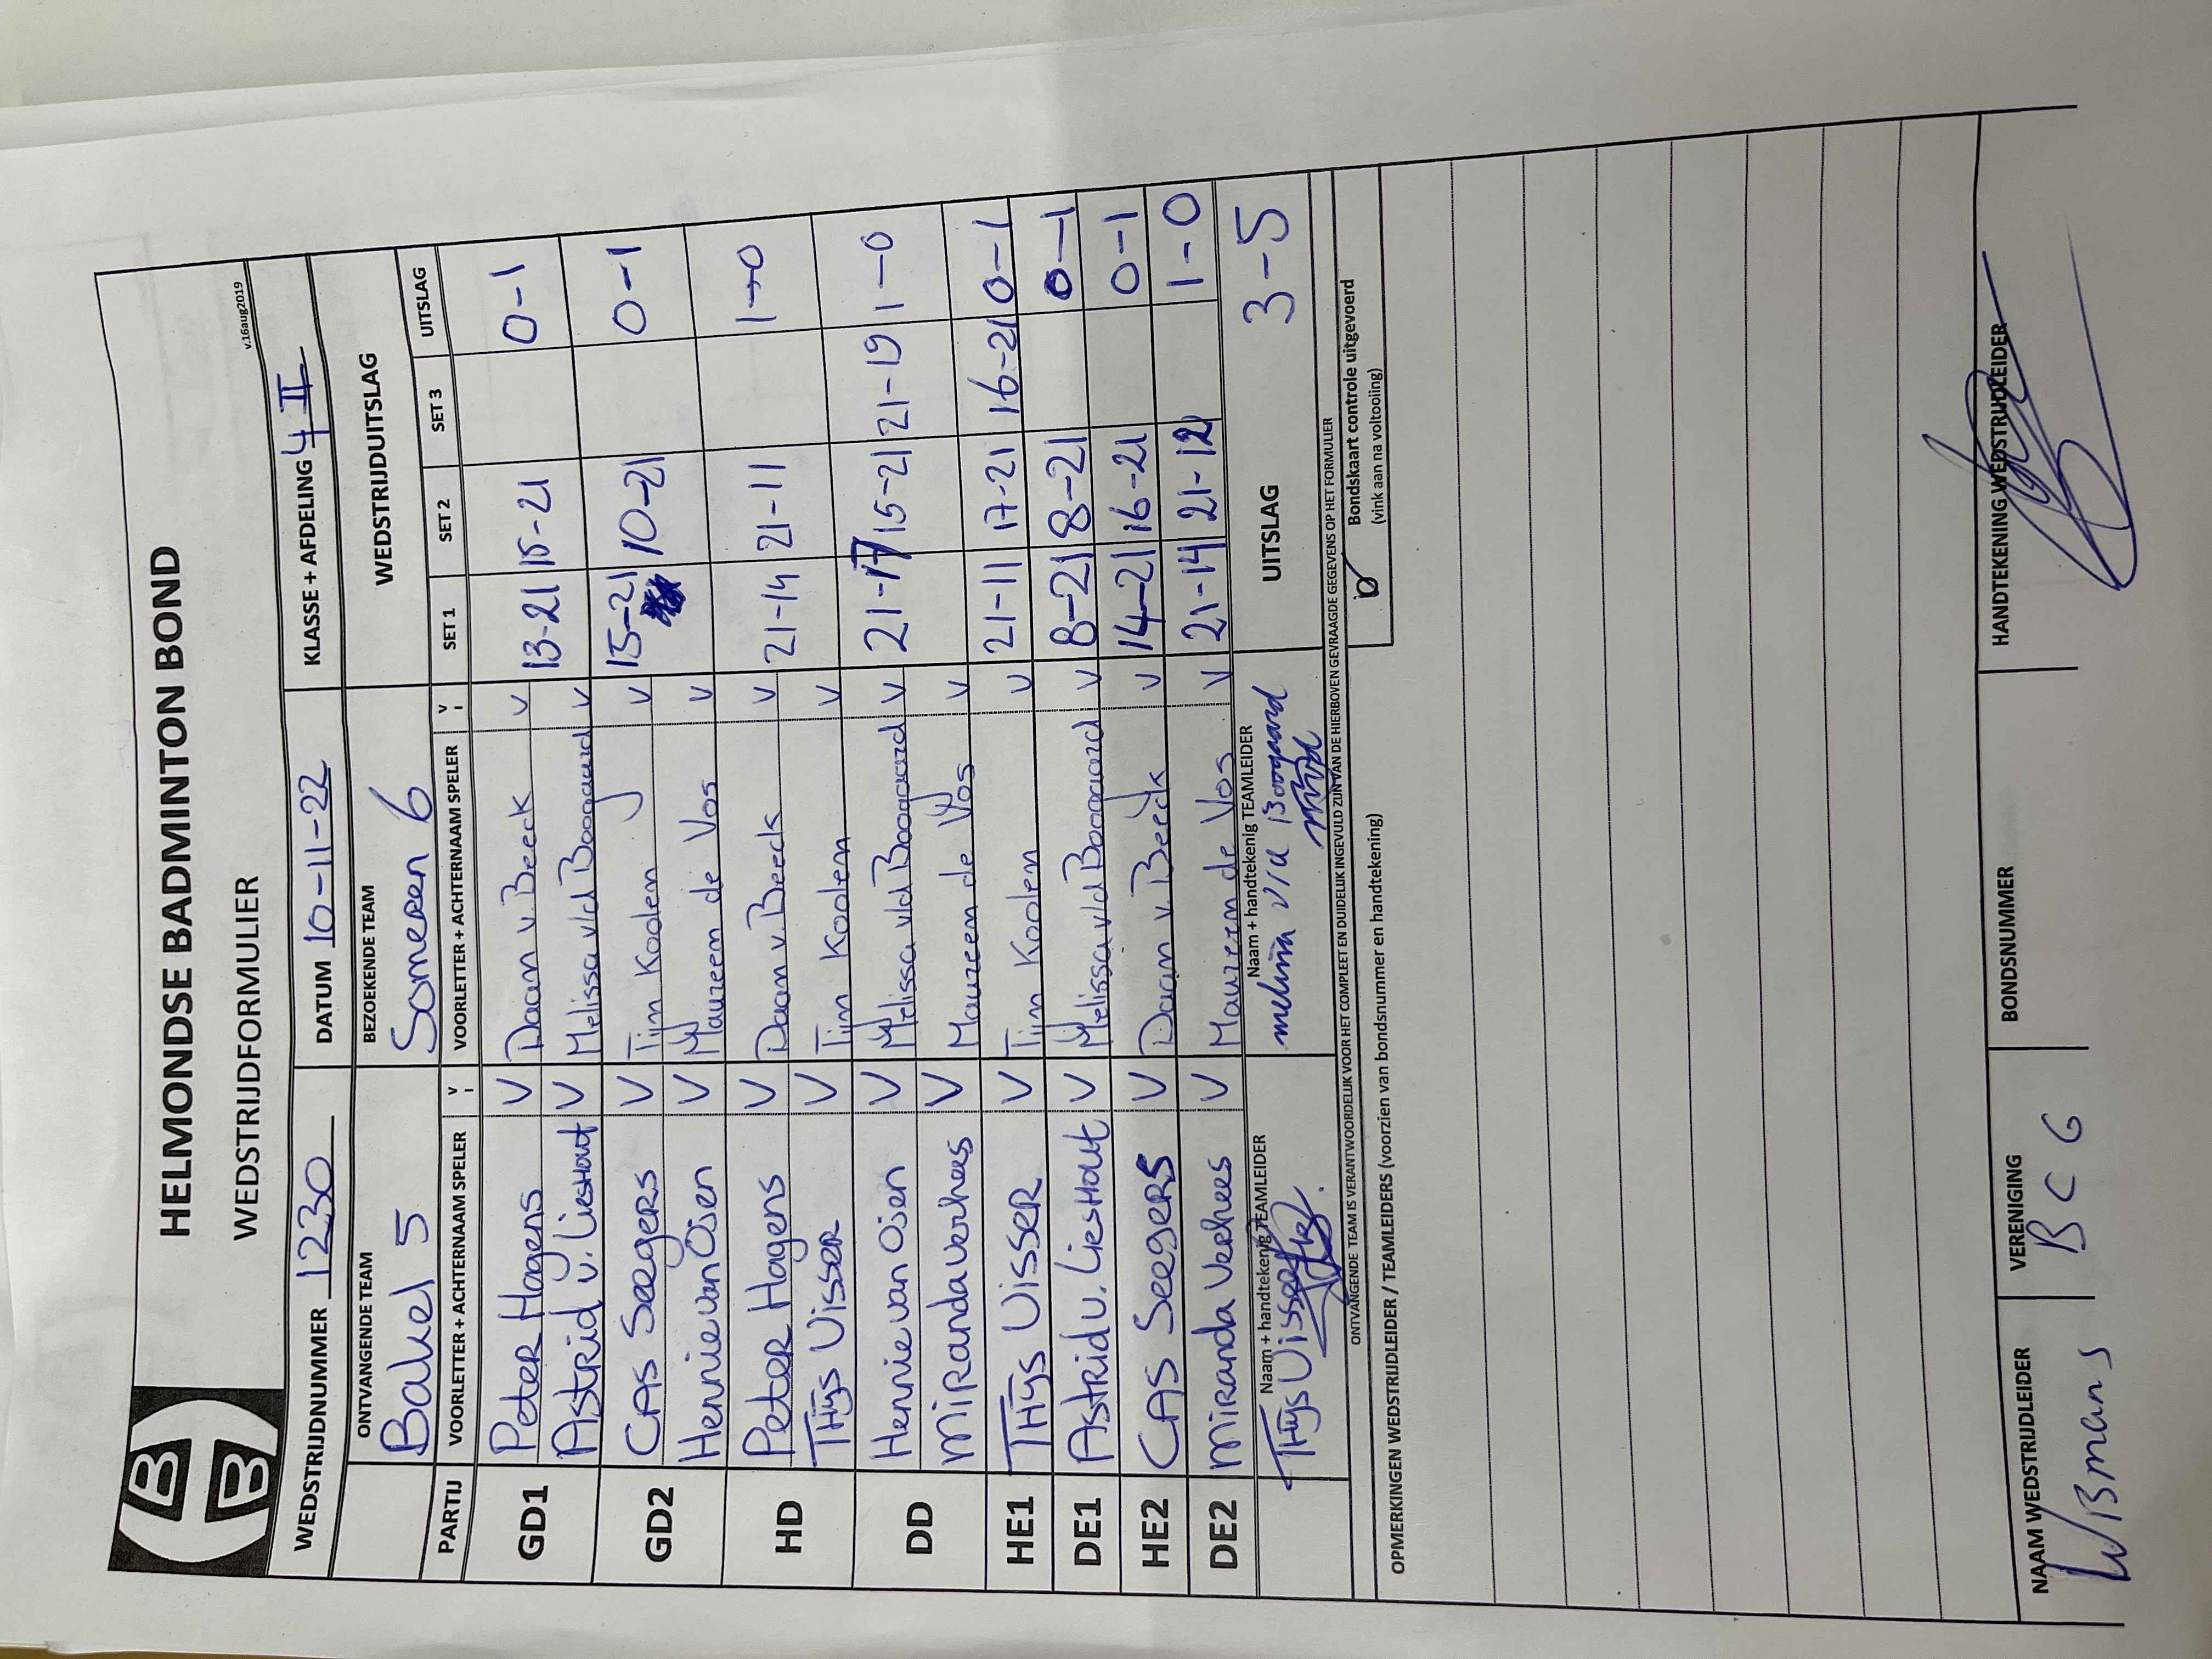 HBB
HELMONDSE BADMINTON BOND
WEDSTRIJDFORMULIER
v.16aug2019
WEDSTRIJDNUMMER 1230 DATUM 10-11-22 KLASSE + AFDELING 4 II
ONTVANGENDE TEAM BEZOEKENDE TEAM WEDSTRIJDUITSLAG
Bakel 5 Someren 6
PARTIJ VOORLETTER + ACHTERNAAM SPELER V VOORLETTER + ACHTERNAAM SPELER V SET 1 SET 2 SET 3 UITSLAG
GD1 Peter Hagens V Daan v. Beeck V 13-21 15-21 0-1
Astrid v. Lieshout V Melissa v/d Boogaard V
GD2 CAS Seegers V Tijn Koolen V 15-21 10-21 0-1
Hennie van Osen V Maureen de Vos V
HD Peter Hagens V Daan v. Beeck V 21-14 21-11 1-0
Thijs Visser V Tijn Koolen V
DD Hennie van Osen V Melissa v/d Boogaard V 21-17 15-21 21-19 1-0
Miranda Verhees V Maureen de Vos V
HE1 Thijs Visser V Tijn Koolen V 21-11 17-21 16-21 0-1
DE1 Astrid v. Lieshout V Melissa v/d Boogaard V 8-21 8-21 0-1
HE2 CAS Seegers V Daan v. Beeck V 14-21 16-21 0-1
DE2 Miranda Verhees V Maureen de Vos V 21-14 21-12 1-0
Naam + handtekenig TEAMLEIDER Naam + handtekenig TEAMLEIDER UITSLAG 3-5
Thijs Visser v/d Boogaard
ONTVANGENDE TEAM IS VERANTWOORDELIJK VOOR HET COMPLEET EN DUIDELIJK INGEVULD ZIJN VAN DE HIERBOVEN GEVRAAGDE GEGEVENS OP HET FORMULIER
Bondskaart controle uitgevoerd
(vink aan na voltooiing)
OPMERKINGEN WEDSTRIJDLEIDER / TEAMLEIDERS (voorzien van bondsnummer en handtekening)
NAAM WEDSTRIJDLEIDER VERENIGING BONDSNUMMER HANDTEKENING WEDSTRIJDLEIDER
Wismans BCG